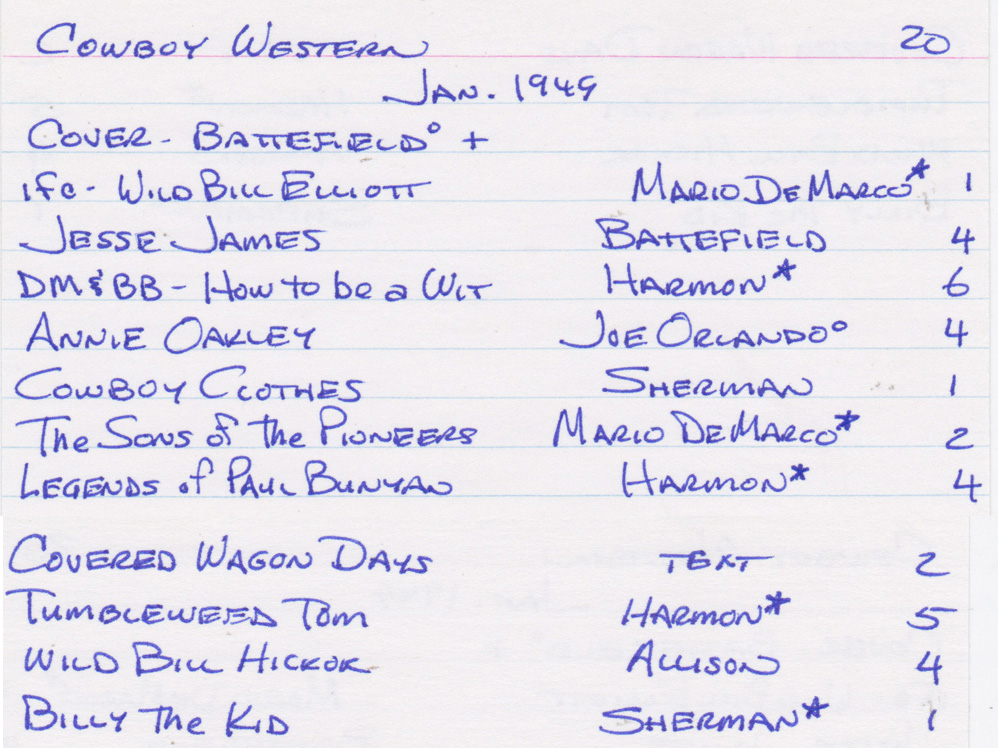 Cowboy Western 20
Jan. 1949
Cover - Battefield° +
ifc - Wild Bill Elliott Mario DeMarco* 1
Jesse James Battefield 4
DM&BB - How to be a Wit Harmon* 6
Annie Oakley Joe Orlando° 4
Cowboy Clothes Sherman 1
The Sons of the Pioneers Mario DeMarco* 2
Legends of Paul Bunyan Harmon* 4
Covered Wagon Days text 2
Tumbleweed Tom Harmon* 5
Wild Bill Hickok Allison 4
Billy the Kid Sherman* 1